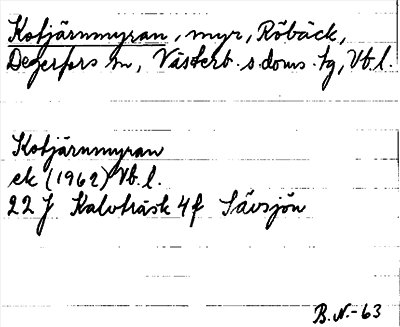 Kotjärnmyran, myr, Röbäck,
Degerfors sn, Västerb. s. doms. tg, Vb. l.
Kotjärnmyran
ek (1962) Vb. l.
22 J Kalvträsk 4f Sävsjön
B.N.-63